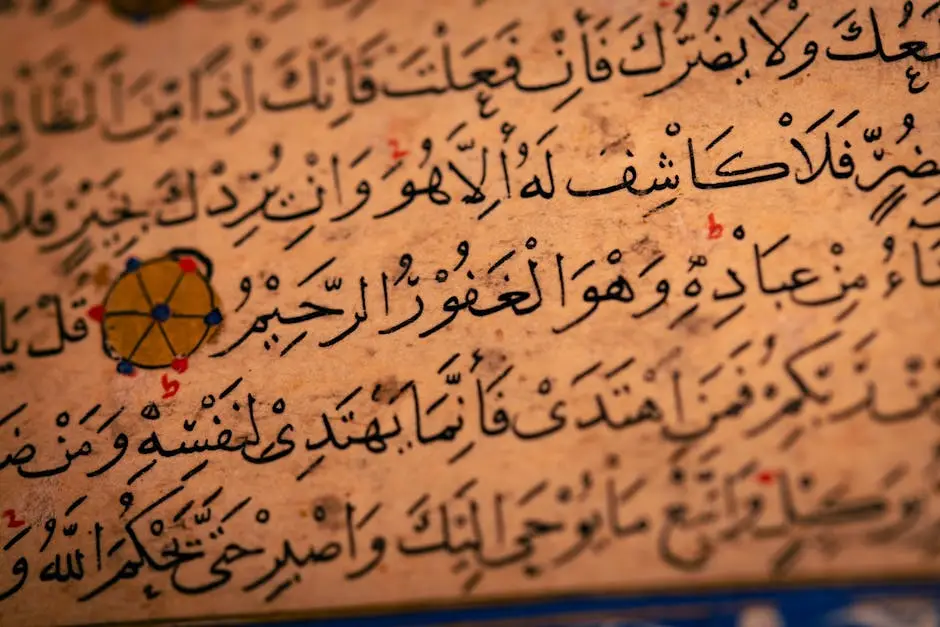 ـعُكَ وَلَا يَضُرُّكَ فَاِنْ فَعَلْتَ فَاِنَّكَ اِذًا مِنَ الظَّالِمـ
ـضُرٍّ فَلَا كَاشِفَ لَهُٓ اِلَّا هُوَ وَاِنْ يُرِدْكَ بِخَيْرٍ فَلَا
ـَاءُ مِنْ عِبَادِهٖ وَهْوَ الْغَفُوْرُ الرَّحِيْمُ قُلْ يَا
مِنْ رَبِّكُمْ فَمَنِ اهْتَدٰى فَاَنَّمَا يَهْتَدِىْ لِنَفْسِهٖ وَمَنْ ضَـ
بِوَكِيْلٍ وَاتَّبِعْ مَا يُوْحٰى اِلَيْكَ وَاصْبِرْ حَتّٰى يَحْكُمَ اللّٰهُ وَ